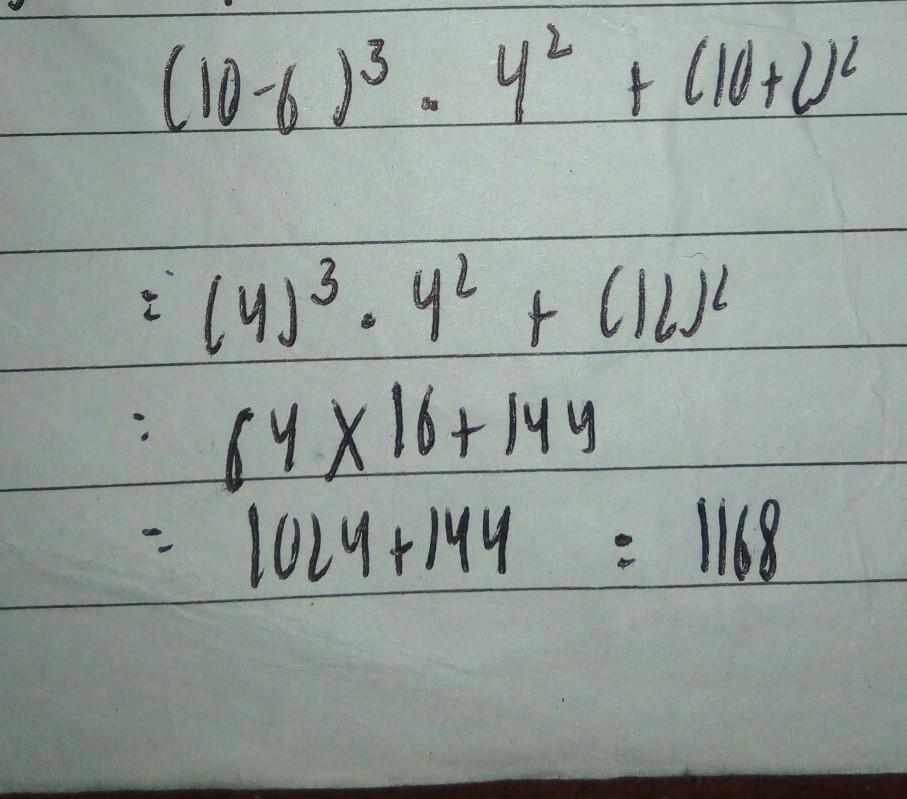 (10-6)³ · 4² + (10+2)²
= (4)³ · 4² + (12)²
= 64 × 16 + 144
= 1024 + 144 = 1168